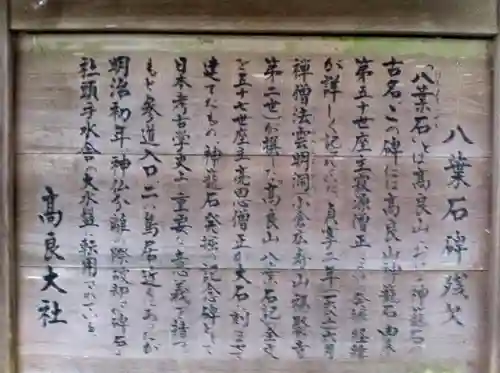 八葉石碑残欠
「八葉石」とは高良山における神籠石の
古名で、この碑には高良山神籠石の由来
第五十世座主寂源僧正による発掘経緯
が詳しく記されている。貞享二年六月
禅僧法雲明洞
第二世)が撰した「高良山八葉石記」全文
を五十七世座主高思僧正が大石に刻ませて
建てたもの。神籠石発掘の記念碑として
日本考古学史上重要な意義を持つ。
もと参道入口、二の鳥居近くにあったが
明治初年、神仏分離の際破却、碑石は
社頭手水舎の大水盤に転用されている。
高良大社